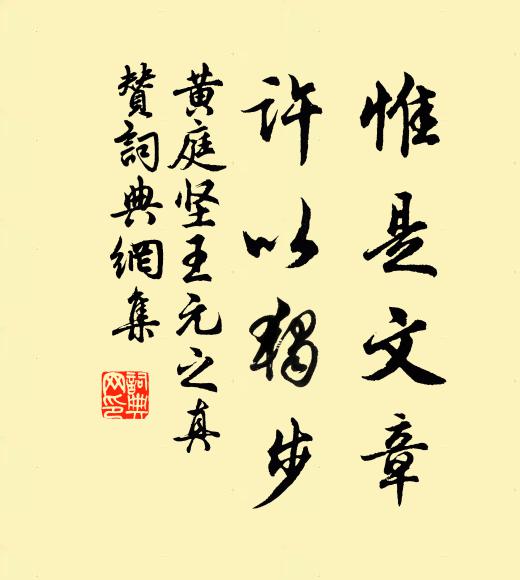 惟是文章
许以独步
黄庭坚王元之真
赞词典網集
詞典
网印